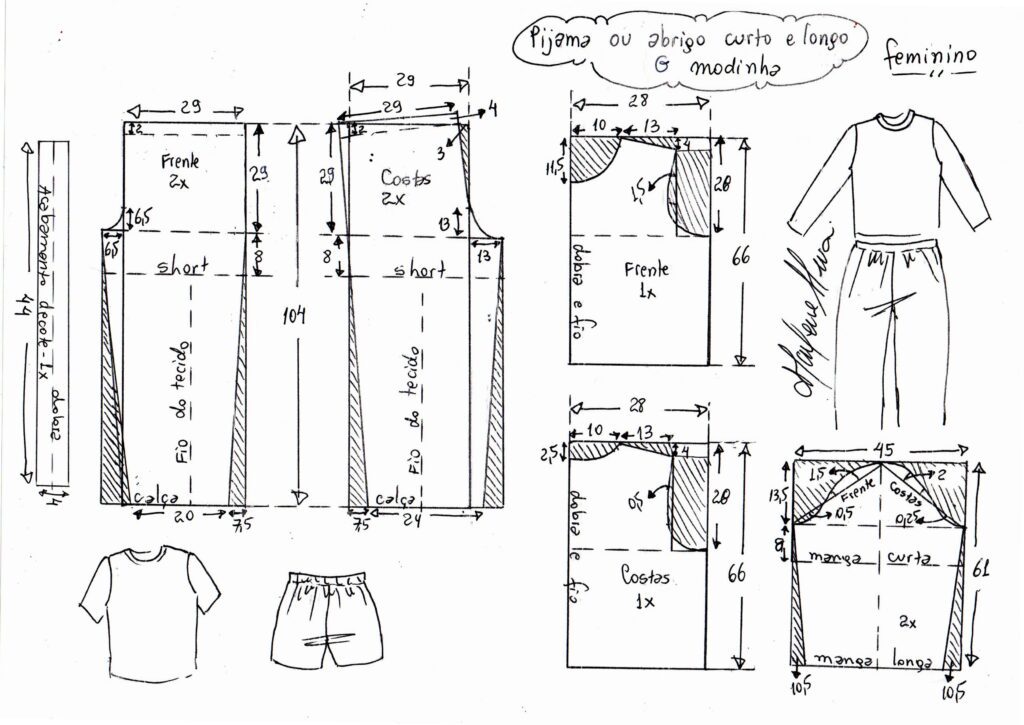 Pijama ou abrigo curto e longo
G modinha
feminino
29
29
29
4
2
2
3
Frente
2x
Costas
2x
29
29
6,5
6,5
13
13
8
8
short
short
104
Fio do tecido
Fio do tecido
calça
calça
20
7,5
7,5
24
44
Acabamento decote - 1x
dobra
4
28
10
13
4
11,5
1,5
28
66
dobra e fio
Frente
1x
28
10
13
4
2,5
0,5
28
66
dobra e fio
Costas
1x
Marlene Mukai
45
1,5
2
Frente
Costas
13,5
0,5
0,25
8
manga curta
61
2x
manga longa
10,5
10,5